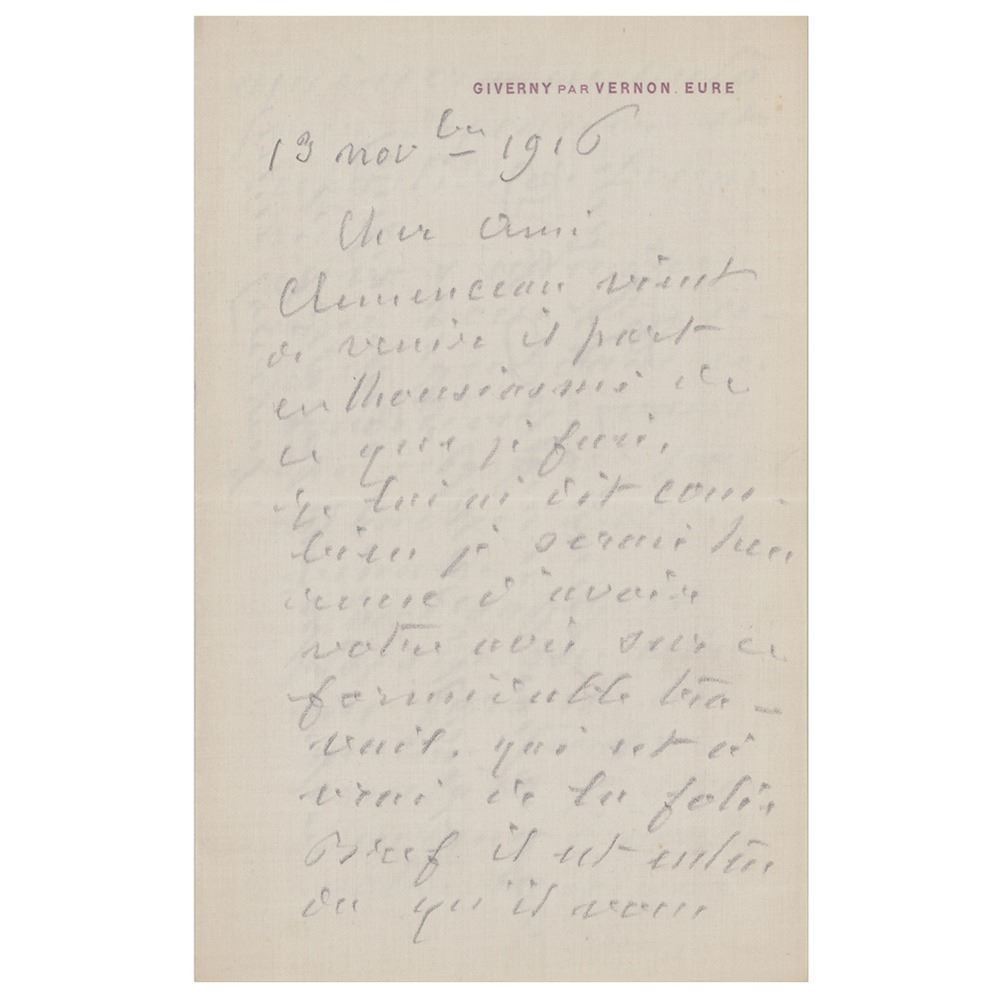 GIVERNY PAR VERNON. EURE
13 novbre 1916
Cher Ami
Clemenceau vient
de venir il part
enthousiasmé de
ce que je fais,
je lui ai dit com-
bien je serais heu
d'avoir
votre avis sur ce
formidable tra-
vail, qui est à
vrai de la folie
Bref il est enten
du qu'il vous